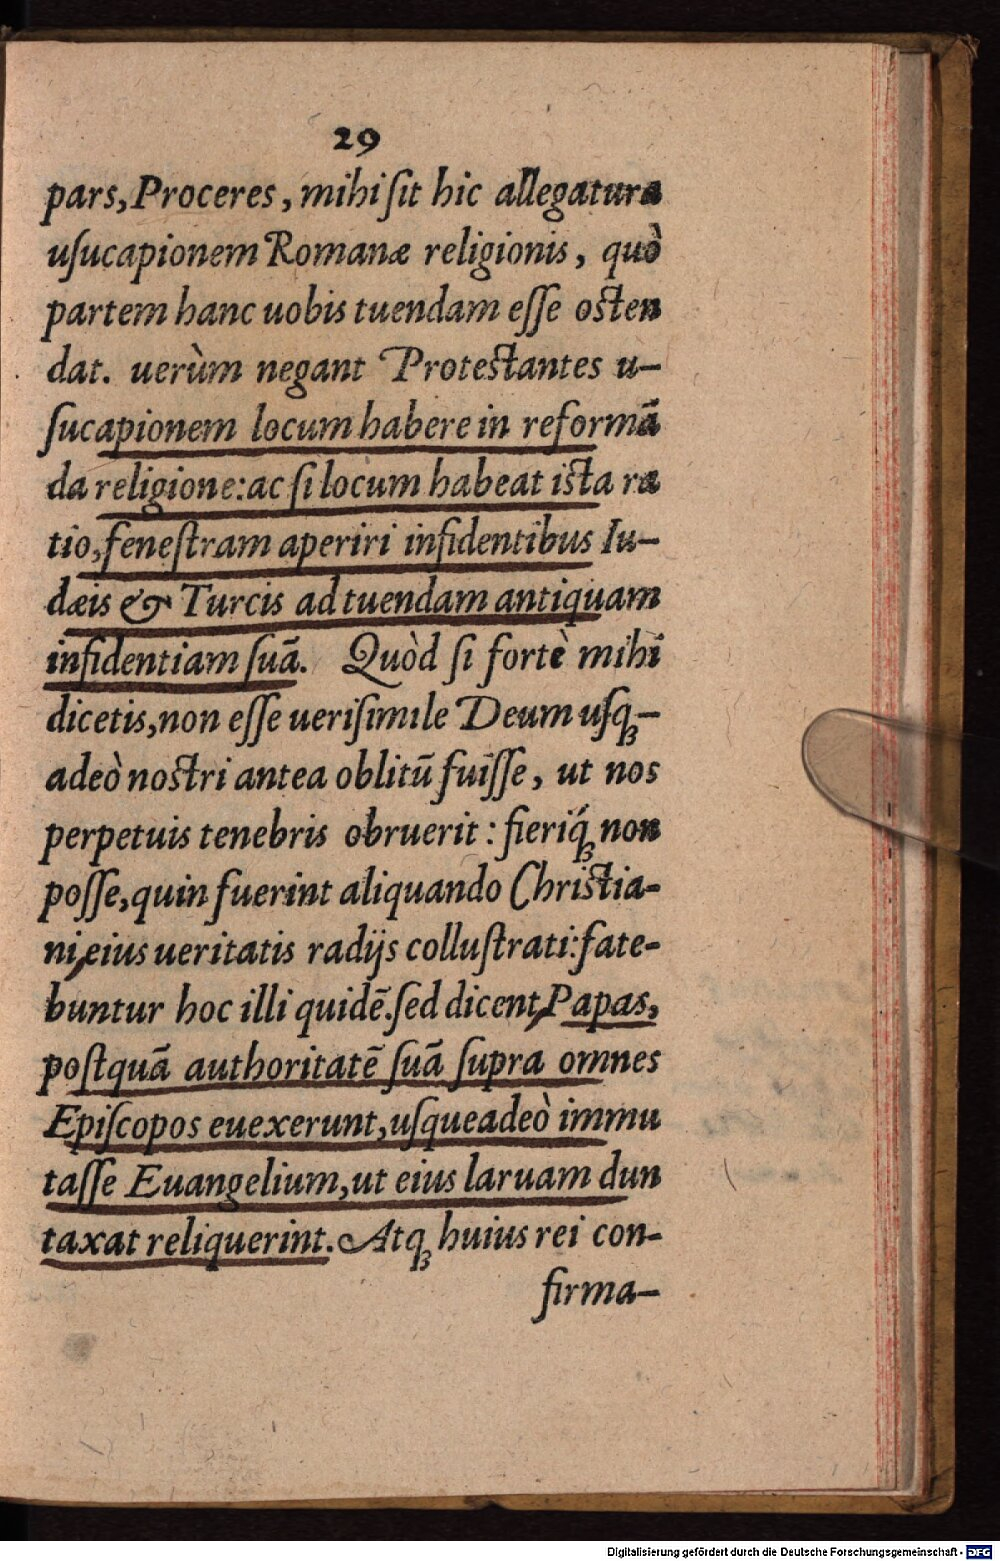 29
pars, Proceres, mihi ſit hic allegatura
uſucapionem Romanæ religionis, quò
partem hanc uobis tuendam eſſe oſten
dat. uerùm negant Proteſtantes u-
ſucapionem locum habere in reformã
da religione: ac ſi locum habeat iſta ra
tio, feneſtram aperiri infidentibus Iu-
dæis & Turcis ad tuendam antiquam
infidentiam ſuã. Quòd ſi fortè mihi
dicetis, non eſſe ueriſimile Deum uſqꝫ-
adeò noſtri antea oblitũ fuiſſe, ut nos
perpetuis tenebris obruerit: fieriq́ꝫ non
poſſe, quin fuerint aliquando Chriſtia-
ni, eius ueritatis radijs colluſtrati: fate-
buntur hoc illi quidẽ. ſed dicent, Papas,
poſtquã authoritatẽ ſuã ſupra omnes
Epiſcopos euexerunt, uſqueadeò immu
taſſe Euangelium, ut eius laruam dun
taxat reliquerint. Atqꝫ huius rei con-
firma-
Digitalisierung gefördert durch die Deutsche Forschungsgemeinschaft - DFG